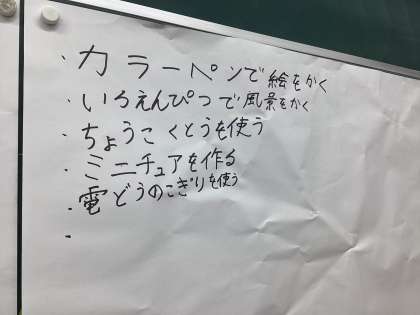 ・カラーペンで絵をかく
・いろえんぴつで風景をかく
・ちょうこくとうを使う
・ミニチュアを作る
・電どうのこぎりを使う
・